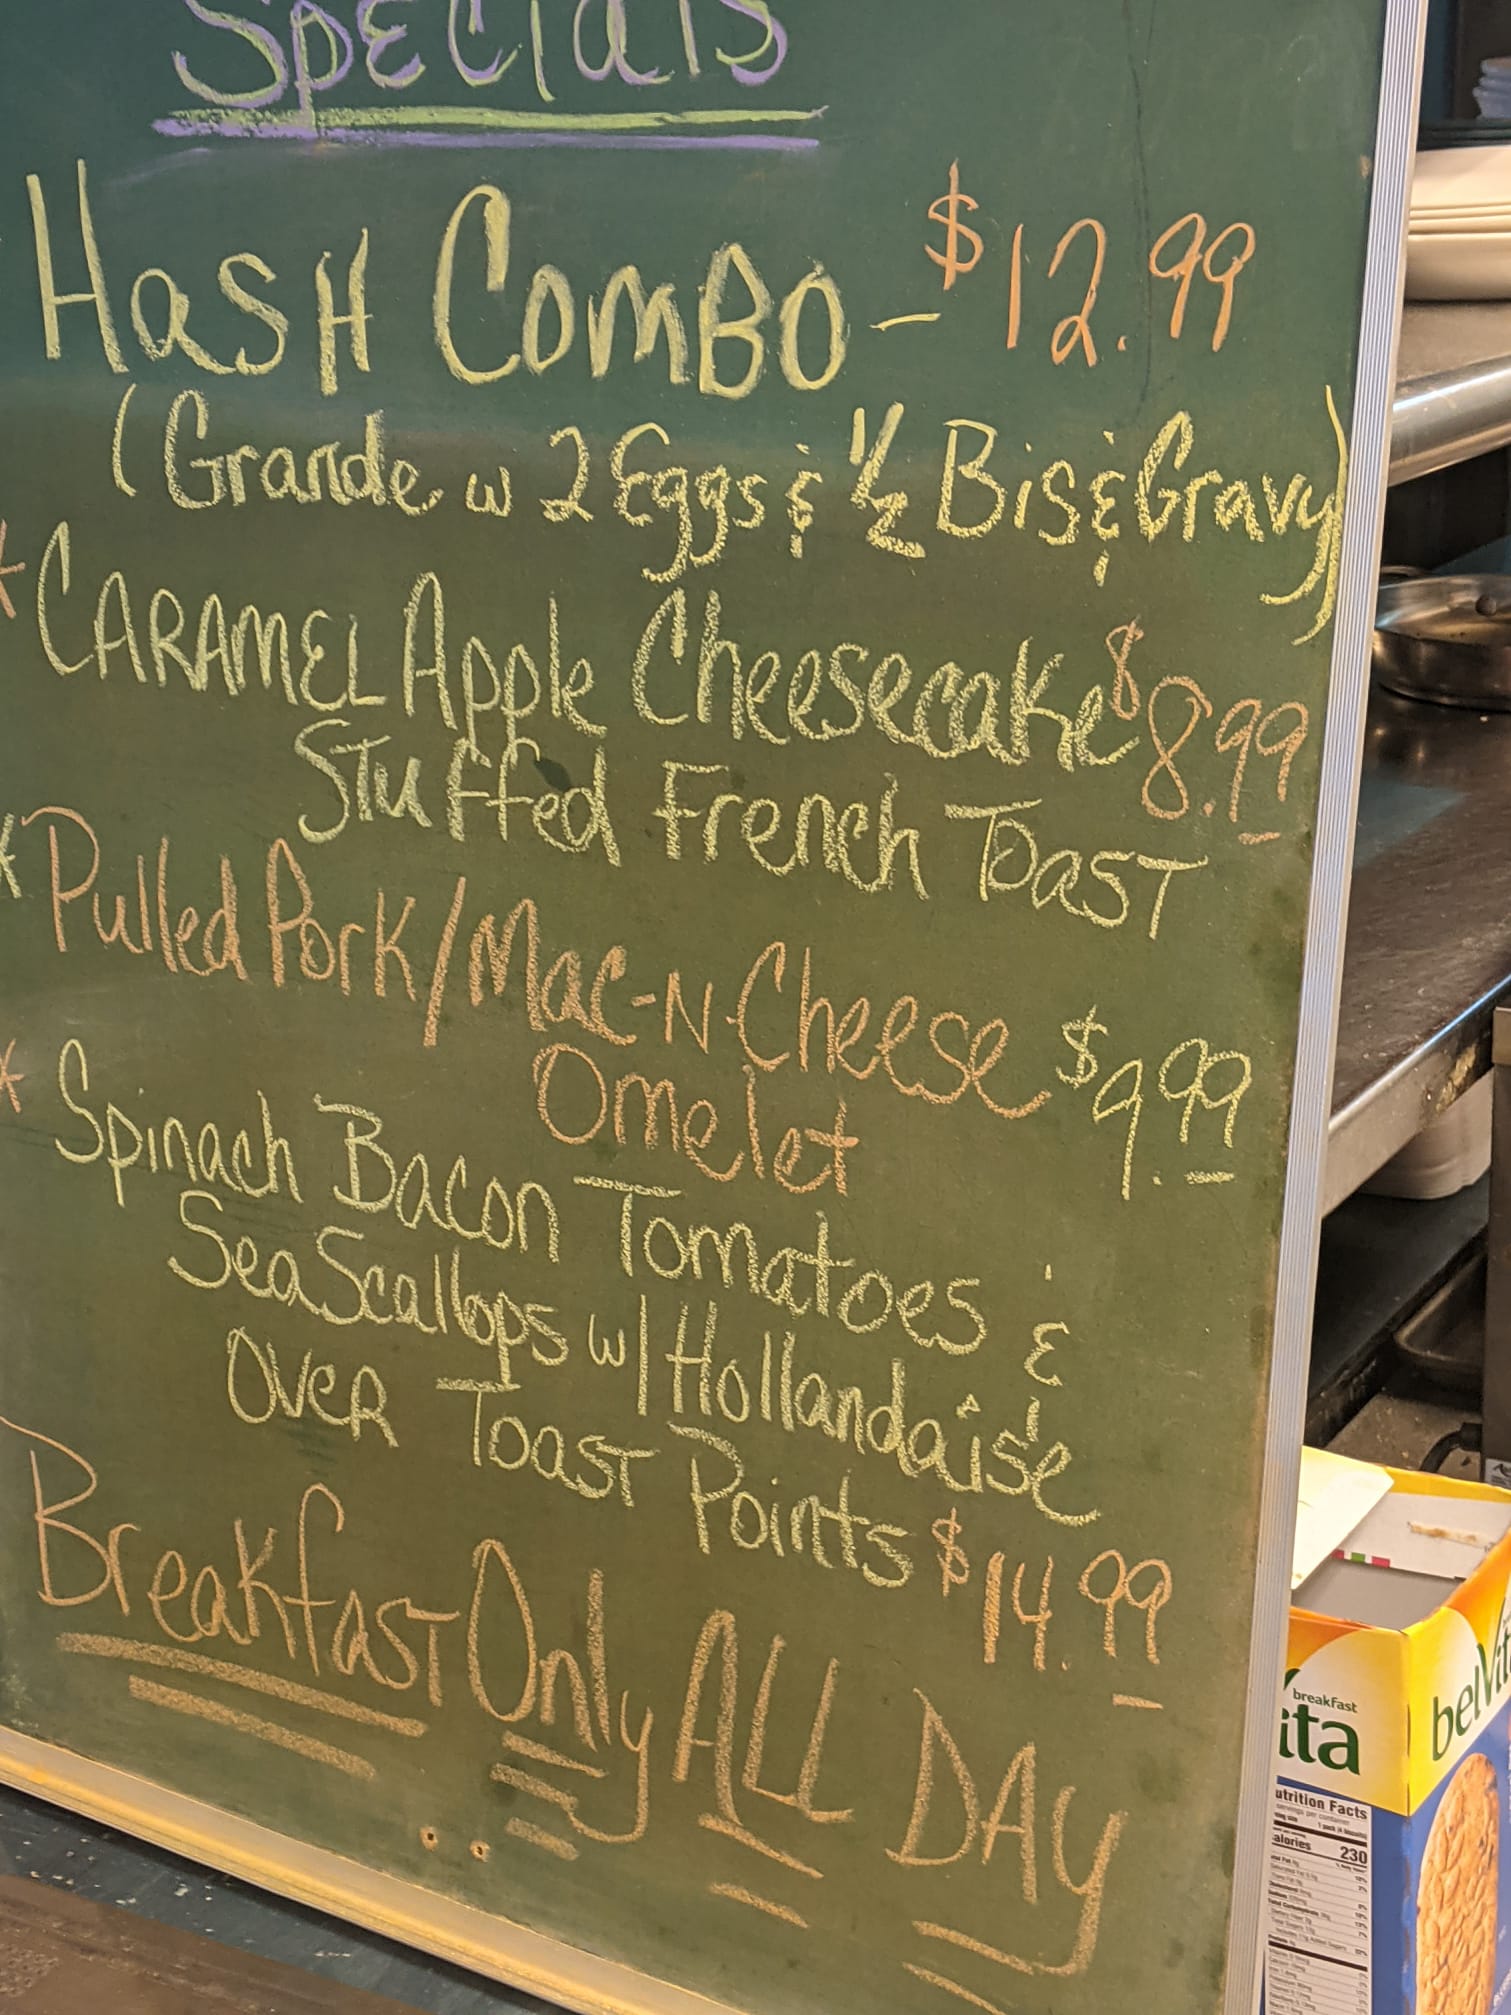 Specials
HasH Combo - $12.99
(Grande w 2 Eggs & 1/2 Bis & Gravy)
* CARAMEL Apple Cheesecake $8.99
Stuffed French Toast
* Pulled Pork/Mac-N-Cheese
Omelet $9.99
* Spinach Bacon Tomatoes &
Sea Scallops w/ Hollandaise
Over Toast Points $14.99
Breakfast Only ALL DAY
breakfast
ita
belVit
utrition Facts
servings per container
1 pack (4 biscuits)
alories 230